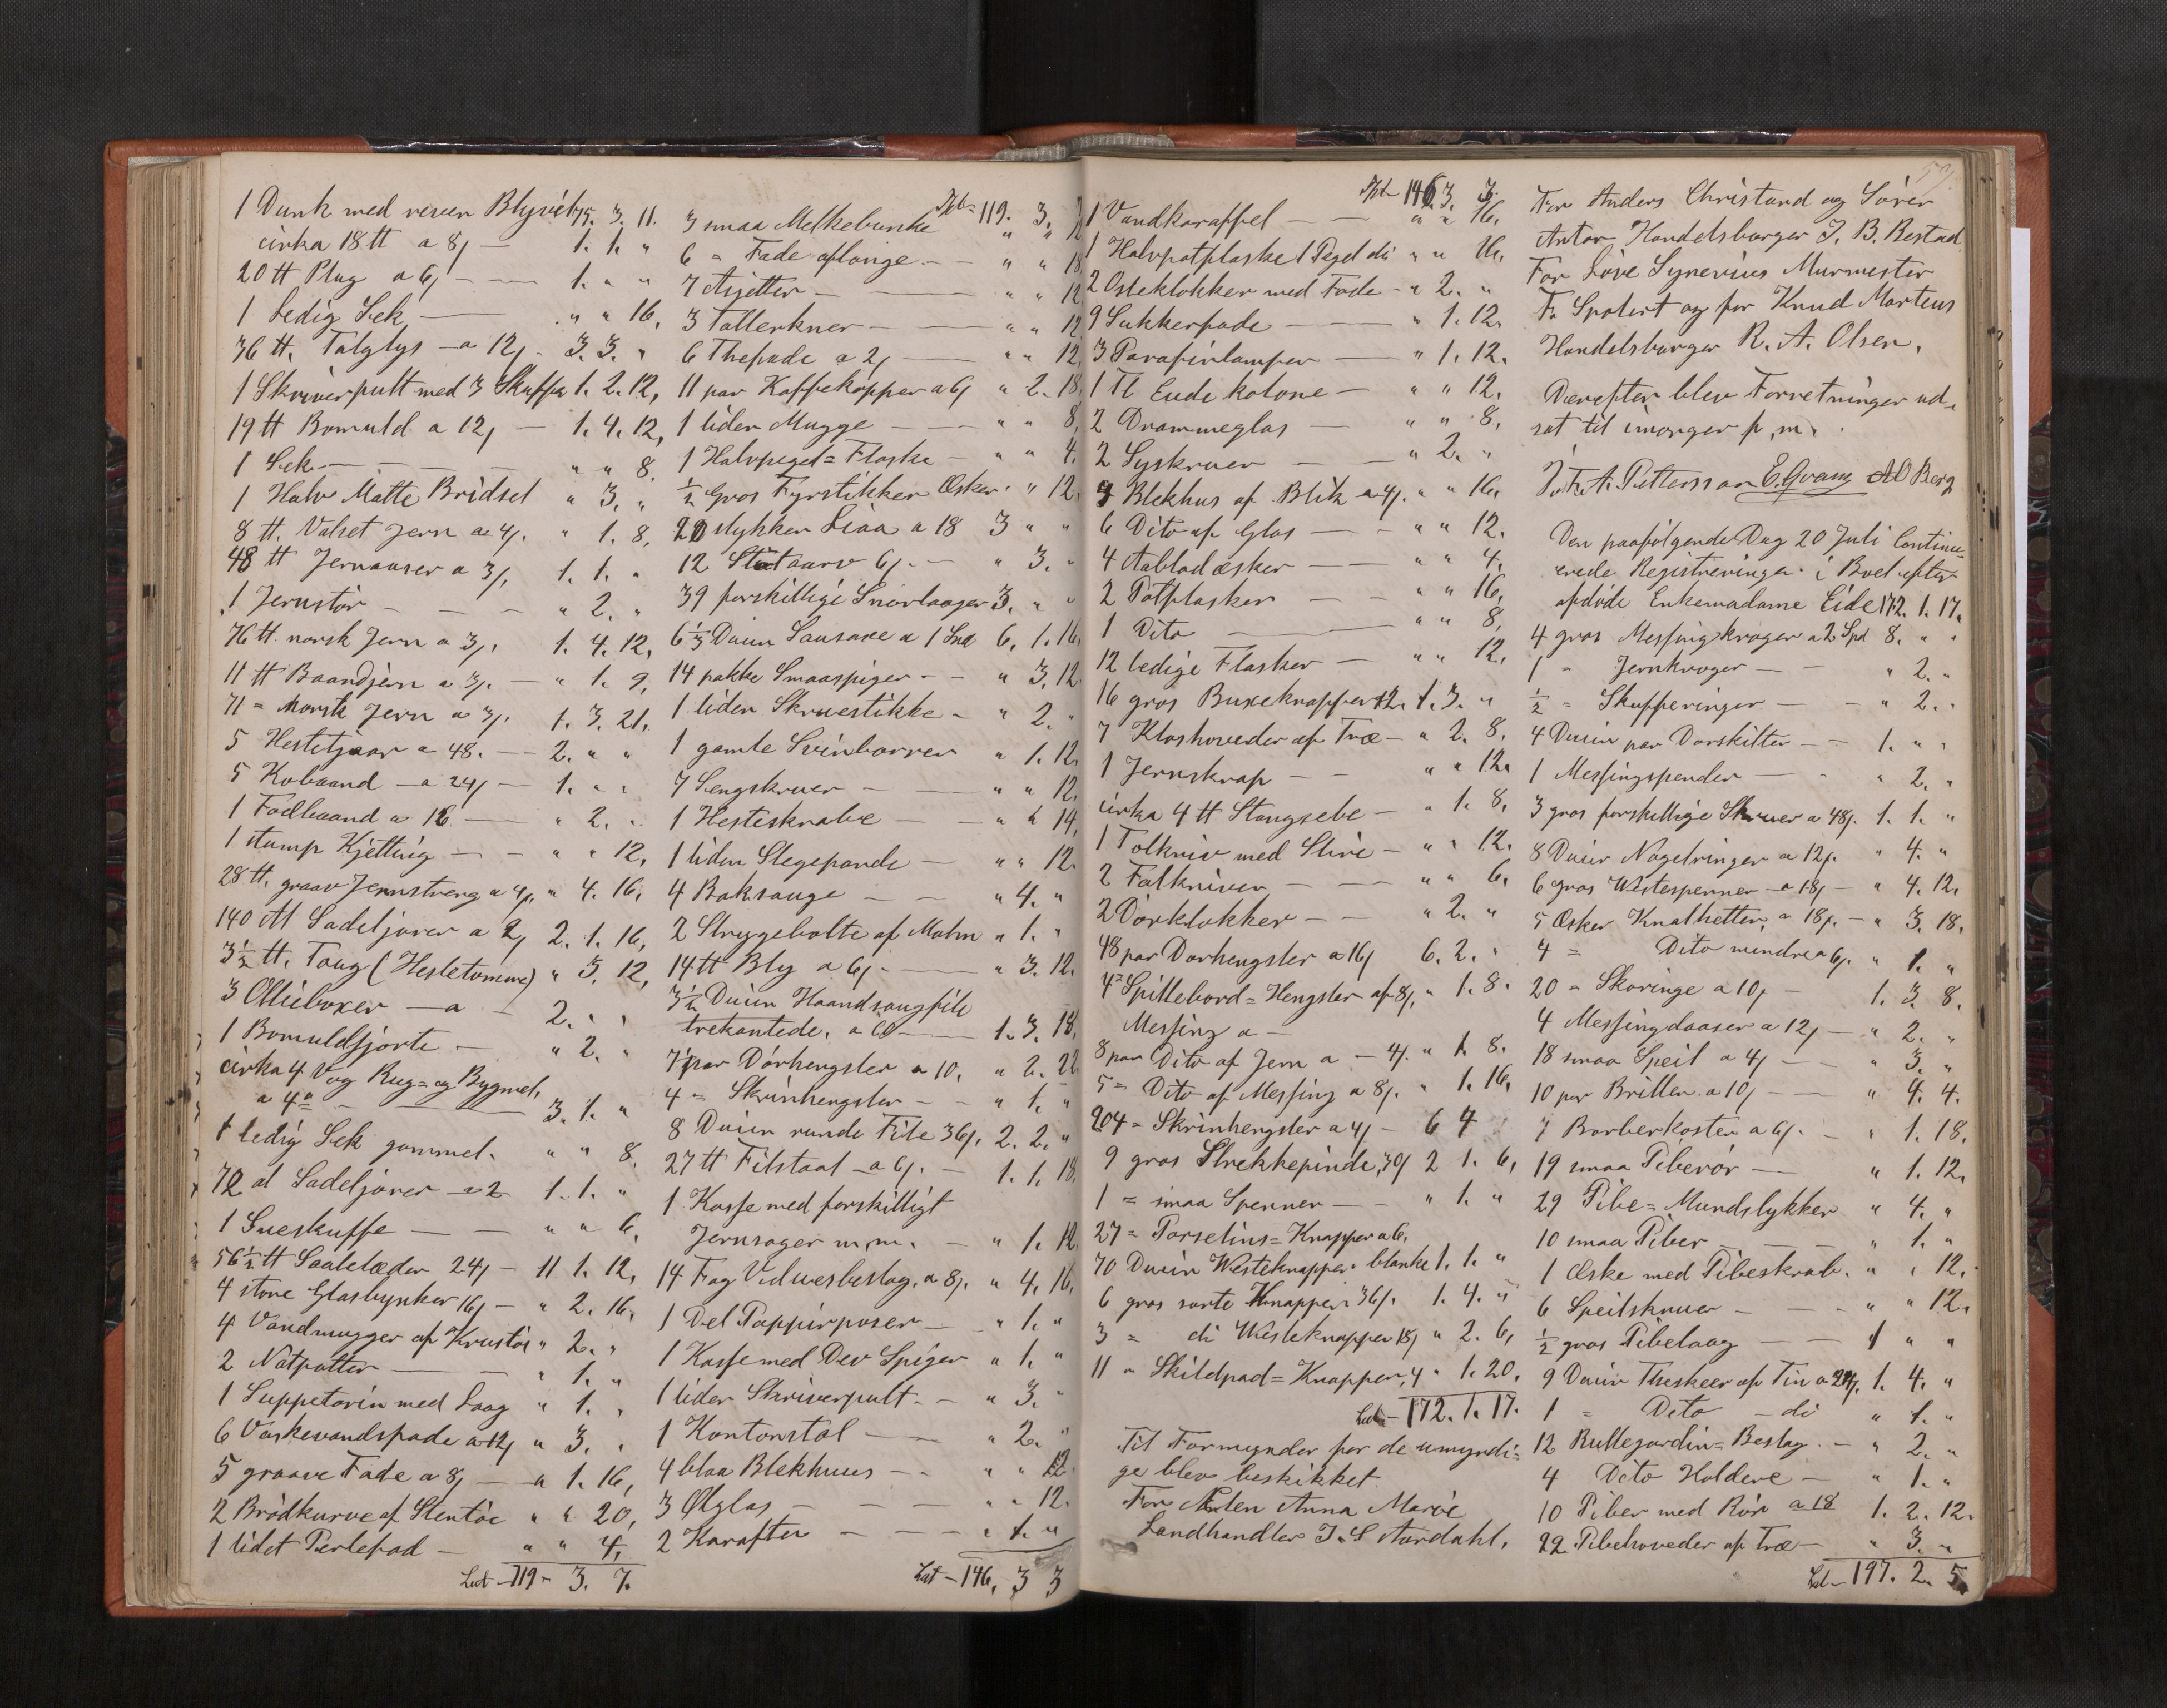 1 Dunk med reven Blyvit 75. 3. 11.
cirka 18 tt a 8ʃ — 1. 1. "
20 tt Plug a 6ʃ — 1. " "
1 Ledig Sek — " " 16,
36 tt. Talglys — a 12ʃ. 3. 3. "
1 Skriverpult med 3 Skuffer 1. 2. 12,
19 tt Bomuld a 12ʃ — 1. 4. 12,
1 Sek — " " 8.
1 Halv Matte Bridsel " 3. "
8 tt. Valset Jern a 4ʃ. " 1. 8,
48 tt Jernauser a 3ʃ. 1. 1. "
1 Jernstör — " 2. "
76 tt. norsk Jern a 3ʃ. 1. 4. 12,
11 tt Baandjern a 3ʃ. — " 1. 9,
71 = Norsk Jern a 3ʃ. 1. 3. 21,
5 Hestetjaar a 48. — 2. " "
5 Kobaand — a 24ʃ — 1. " "
1 Fodbaand a 16 — " 2. "
1 stump Kjetting — " " 12,
28 tt. graav Jernstreng a 4ʃ. " 4. 16,
140 Al Sadeljorer a 2ʃ 2. 1. 16,
3½ tt. Toug (Hestetomme) " 3. 12,
3 Olieboxer — a — 2. " "
1 Bomuldsjorte — " 2. "
cirka 4 Vog Rug= og Bygmel,
a 4 — 3. 1. "
1 ledig Sek gammel. " " 8.
72 al Sadeljorer a 2 1. 1. "
1 Sneskuffe — " " 6,
56½ tt Saalelæder 24ʃ — 11 1. 12,
4 store Glasbynker 16ʃ — " 2. 16,
4 Vandmugger af Krustöi " 2. "
2 Natpotter — " 1. "
1 Suppeterin med Laag " 1. "
6 Vaskevandsfade a 12ʃ " 3. "
5 graave Fade a 8ʃ — " 1. 16,
2 Brödkurve af Stentöi " " 20,
1 lidet Perlefad — " " 4,
Lat — 119 — 3. 7.
Tpt — 119. 3. 7
3 smaa Melkebunke " " 12
6 = Fade aflange — " " 18
7 Asjetter — " " 12
3 Tallerkner — " " 12
6 Thefade a 2ʃ — " " 12,
11 par Kaffekopper a 6ʃ " 2. 18,
1 liden Mugge — " " 8,
1 Halvpegel = Flaske — " " 4.
½ Gros Fyrstikker Æsker " " 12.
20 stykker Liaa a 18 3 " "
12 Stutaarv 6ʃ. — " 3. "
39 forskillige Snorlaager 3. " "
6⅓ Dusin Sausaxe a 1 Spd 6. 1. 16.
14 pakke Smaaspiger — " 3. 12.
1 liden Skruestikke — " 2. "
1 gamle Svinborrer " 1. 12.
7 Sengskruer — " " 12,
1 Hesteskrabe — " " 14,
1 liden Stegepande — " " 12.
4 Baksauge — " 4. "
2 Strygebolte af Malm " 1. "
14 tt Bly a 6ʃ — " 3. 12.
3½ Dusin Haandsaugfile
trekantede. a — 1. 3. 18.
7 par Dörhengsler a 10. " 2. 22
4 = Skrinhengsler — " 1. "
8 Dusin runde File 36ʃ. 2. 2. "
27 tt Filstaal a 6ʃ. — 1. 1. 18.
1 Kasse med forskilligt
Jernsager m, m. — " 1. 12.
14 Fag Vinduesbeslag. a 8ʃ. " 4. 16.
1 Del Pappirposer — " 1. "
1 Kasse med Dev Spiger " 1. "
1 liden Skriverpult. — " 3. "
1 Kontorstol — " 2. "
4 blaa Blekhuus — " " 12.
3 Ølglas — " " 12.
2 Karafter — " 1. "
Lat — 146, 3 3
Tpt 146. 3. 3.
1 Vandkaraffel — " " 16.
1 Halvpotflaske 1 Pegel di " " 16,
2 Osteklokker med Fade — " 2. "
9 Sukkerfade — " 1. 12.
3 Parafinlamper — " 1. 12.
1 Fl Eude kolone — " " 12.
2 Drammeglas — " " 8,
2 Syskruer — " 2. "
4 Blekhus af Blik a 4ʃ. " " 16,
6 Dito af Glas — " " 12.
4 Aablad æsker — " " 4.
2 Potflasker — " " 16,
1 Dito — " " 8,
12 ledige Flasker — " " 12,
16 gros Buxeknapper 12. 1. 3. "
7 Kloshoveder af Træ — " 2. 8.
1 Jernskrap — " " 12.
cirka 4 tt Stangsebe — " 1. 8,
1 Tolkniv med Slire — " " 12.
2 Falkniver — " " 6.
2 Dörklokker — " 2. "
48 par Dorhengsler a 16ʃ 6. 2. "
4 = Spillebord = Hengsler af 8ʃ. " 1. 8.
Messing a —
8 par Dito af Jern a — 4ʃ. " 1. 8.
5 = Dito af Messing a 8ʃ. " 1. 16,
204 = Skrinhengsler a 4ʃ — 6 4
9 gros Strekkepinde, 30ʃ 2 1. 6,
1 = smaa Spenner — " 1. "
27 = Porselins = Knapper a 6.
70 Dusin Westeknapper blanke 1. 1. "
6 gros sorte Knapper 36ʃ. 1. 4. "
3 = di Westeknapper 18ʃ " 2. 6,
11 " Skildpad = Knapper, 4 " 1. 20.
Lat — 172. 1. 17.
Til Formynder for de umyndi=
ge blev beskikket.
For Anna Marie
Landhandler J. S Aardahl,
59.
For Anders Christand og Sören
Anton Handelsborger J. B. Restad
For Live Synevius Murmester
F. og for Knud Marteus
Handelsborger R. A. Olsen.
Derefter blev Forretningen ud=
sat til imorgen f, m.
J. F. A. Pettersson E. Gram AO Berg
Den paafölgende Dag 20 Juli Continu=
erede Registreringen i Boet efter
afdöde Enkemadame Eide 172. 1. 17.
4 gros Messingkroger a 2 Spd 8. " "
1 = Jernkroger — " 2. "
½ = Skufferinger — " 2. "
4 Dusin par Dorskilter — 1. " "
1 Messingspender — " 2. "
3 gros forskillige Skruer a 48ʃ. 1. 1. "
8 Dusin Nagelringer a 12ʃ. " 4. "
6 gros Westespenner a 18ʃ — " 4. 12,
5 Æsker Knalhetter, a 18ʃ. — " 3. 18,
4 = Dito mindre a 6ʃ. " 1. "
20 = Skoringe a 10ʃ — 1. 3. 8.
4 Messingdaaser a 12ʃ — " 2. "
18 smaa Speil a 4ʃ — " 3. "
10 par Briller a 10ʃ — " 4. 4.
7 Barberkoster a 6ʃ. — " 1. 18,
19 smaa Piberör — " 1. 12,
29 Pibe = Mundslykker " 4. "
10 smaa Piber — " 1. "
1 Æske med Pibeskrab. " " 12,
6 Speilskruer — " " 12.
½ gros Pibelaag — 1 " "
9 Dusin Theskeer af Tin a 24ʃ. 1. 4. "
1 = Dito — di " 1. "
12 Rullegardin = Beslag — " 2. "
4 Dito Holdere — " 1. "
10 Piber med Rör a 18 1. 2. 12.
22 Pibehoveder af Træ — " 3. "
Lat — 197. 2. 5.